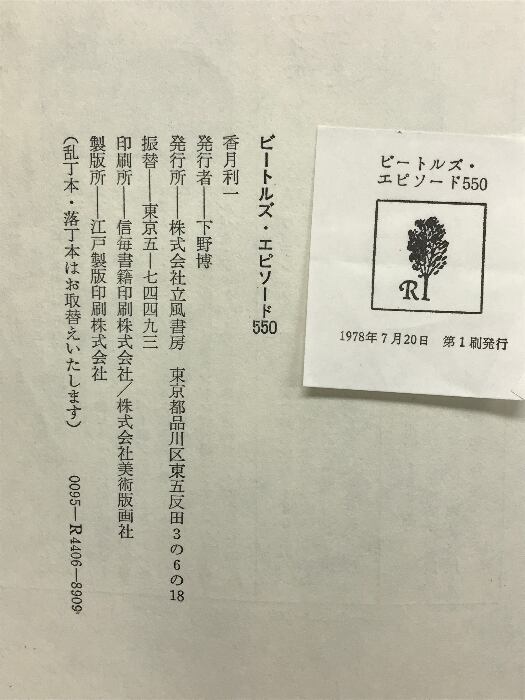 ビートルズ・
エピソード550
R
1978年7月20日　第1刷発行
ビートルズ・エピソード550
香月利一
発行者——下野博
発行所——株式会社立風書房　東京都品川区東五反田3の6の18
振替——東京五—七四四九三
印刷所——信毎書籍印刷株式会社／株式会社美術版画社
製版所——江戸製版印刷株式会社
(乱丁本・落丁本はお取替えいたします)　0095—R4406—8909